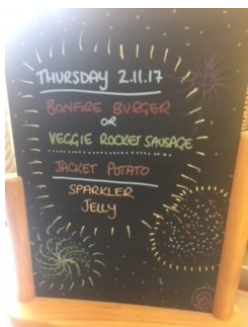 THURSDAY 2.11.17
BONFIRE BURGER
OR
VEGGIE ROCKET SAUSAGE
JACKET POTATO
SPARKLER
JELLY